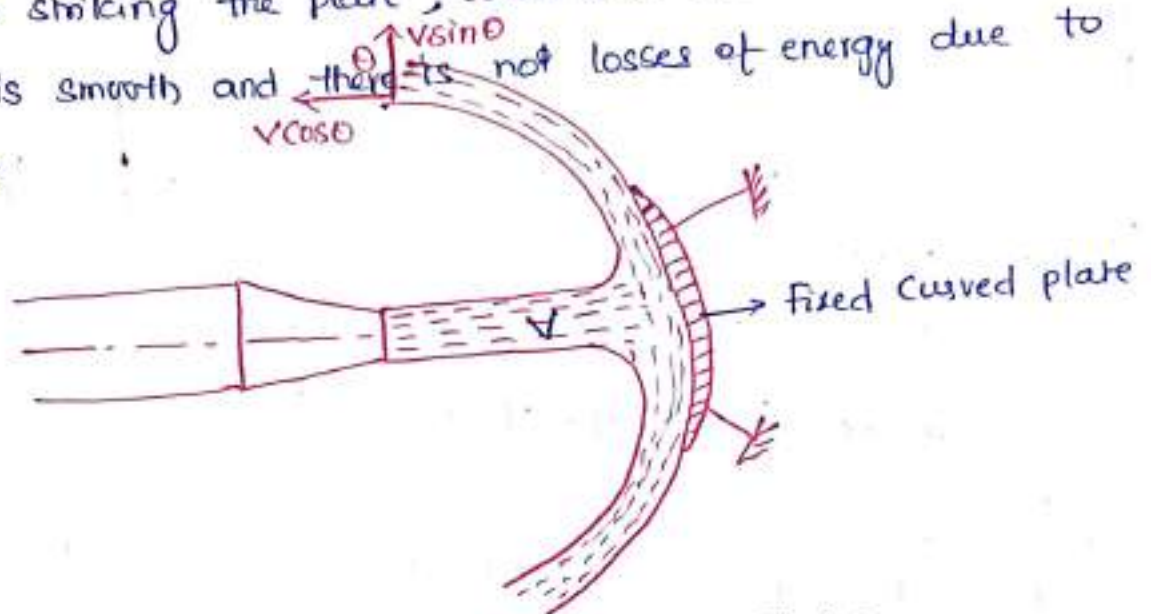 striking the plate,
Vsinθ
θ
is smooth and there is not losses of energy due to
Vcosθ
V
Fixed Curved plate